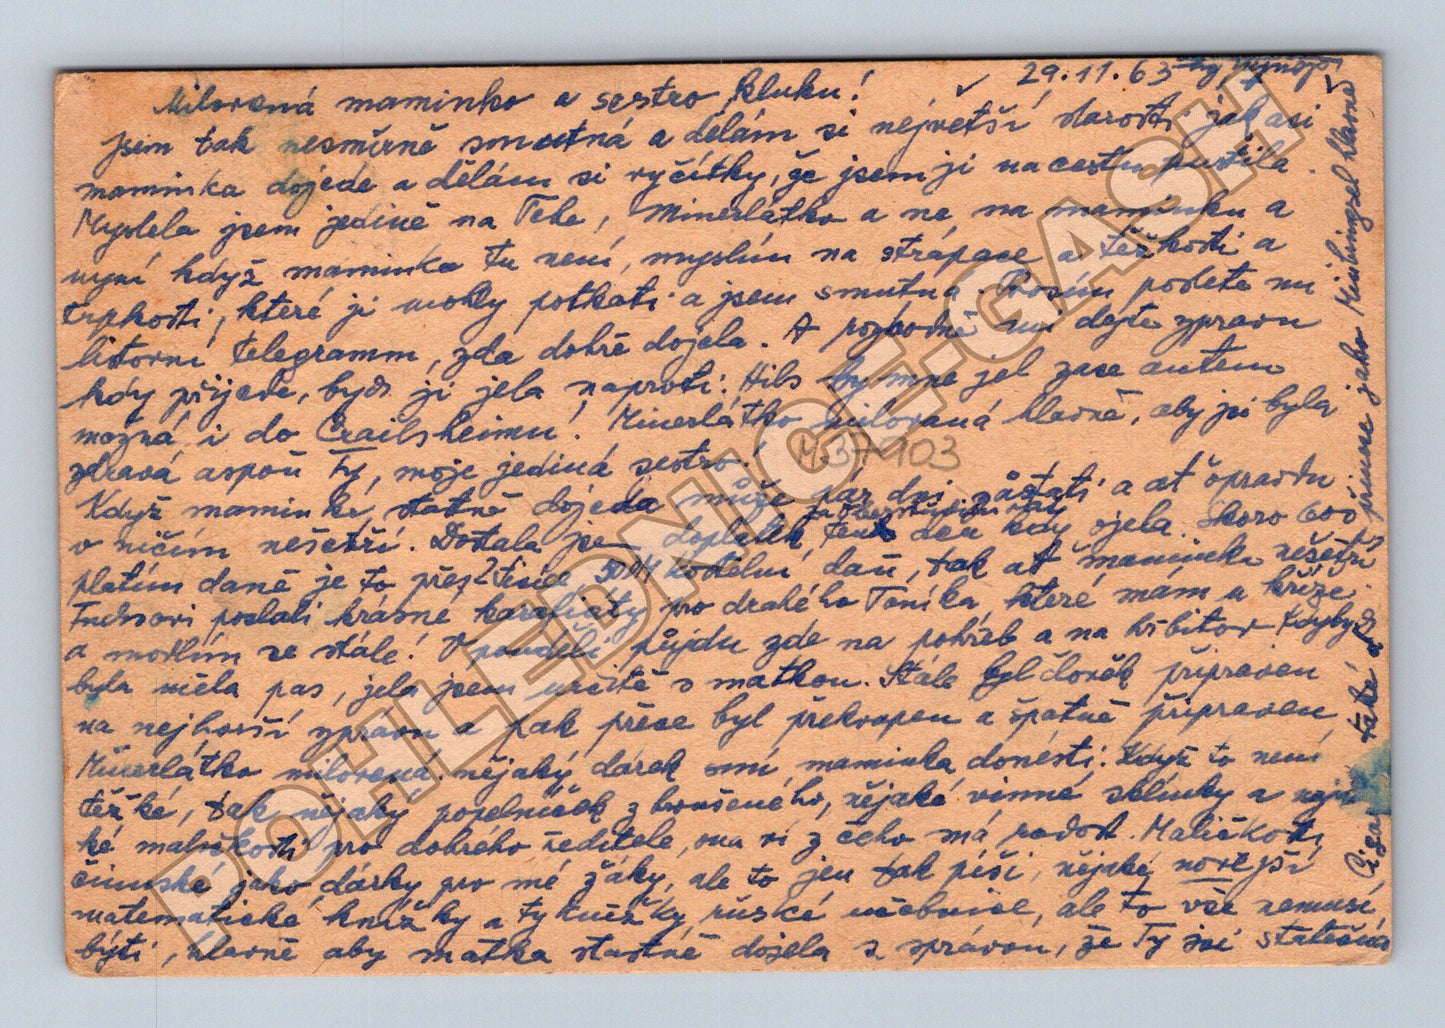 29.11.63
Milovaná maminko a sestro, kluku!
Jsem tak nesmírně smutná a dělám si největší starosti jak asi
maminka dojede a dělám si výčitky, že jsem ji na cestu pustila.
Myslela jsem jedině na Tebe, Minerlátko a ne na maminku a
nyní když maminka tu není, myslím na strápace a těžkosti a
trpkosti, které ji mohly potkati a jsem smutná. Prosím pošlete mi
telegramm, zda dobře dojela. A pozorně mi dejte zprávu
kdy přijede, bych jí jela naproti. Hils by mne jel zase autem
možná i do Crailsheimu! Minerlátko milovaná hlavně, aby jsi byla
zdravá aspoň Ty, moje jediná sestro!
M37103
Když maminka šťastně dojela může pár dní zůstati a ať opravdu
v ničím nešetří. Dostala jsem doplatek ten den kdy ojela. Skoro 600
platím daně je to přes daň, tak ať maminka nešetří
poslali krásné karafiáty pro drahého Toníka, které mám u kříže
a modlím se stále! V pondělí půjdu zde na pohřeb a na hřbitov. Kdybych
byla měla pas, jela jsem určitě s matkou. Stále byl člověk připraven
na nejhorší zprávu a pak přece byl překvapen a špatně připraven.
Minerlátko milovaná, nějaký dárek smí maminka donésti. Když to není
těžké, tak nějaký popelníček z broušeného, nějaké vinné sklínky a
ké maličkosti pro dobrého ředitele, ona ví z čeho má radost. Maličkosti
čínské jako dárky pro mé žáky, ale to jen tak píši, nějaké novější
matematické knížky a ruské učebnice, ale to vše nemusí
býti, hlavně aby matka šťastně dojela s zprávou, že Ty jsi statečná
také přinese jako hlavně
POHLEDNICE-GASH